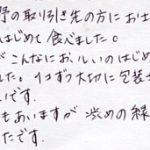 野の取り引き先の方にお土
はじめて食べました。
がこんなにおいしいのはじめ
した。1コずつ大切に包装さ
いです。
もあいますが 渋めの緑
たです。